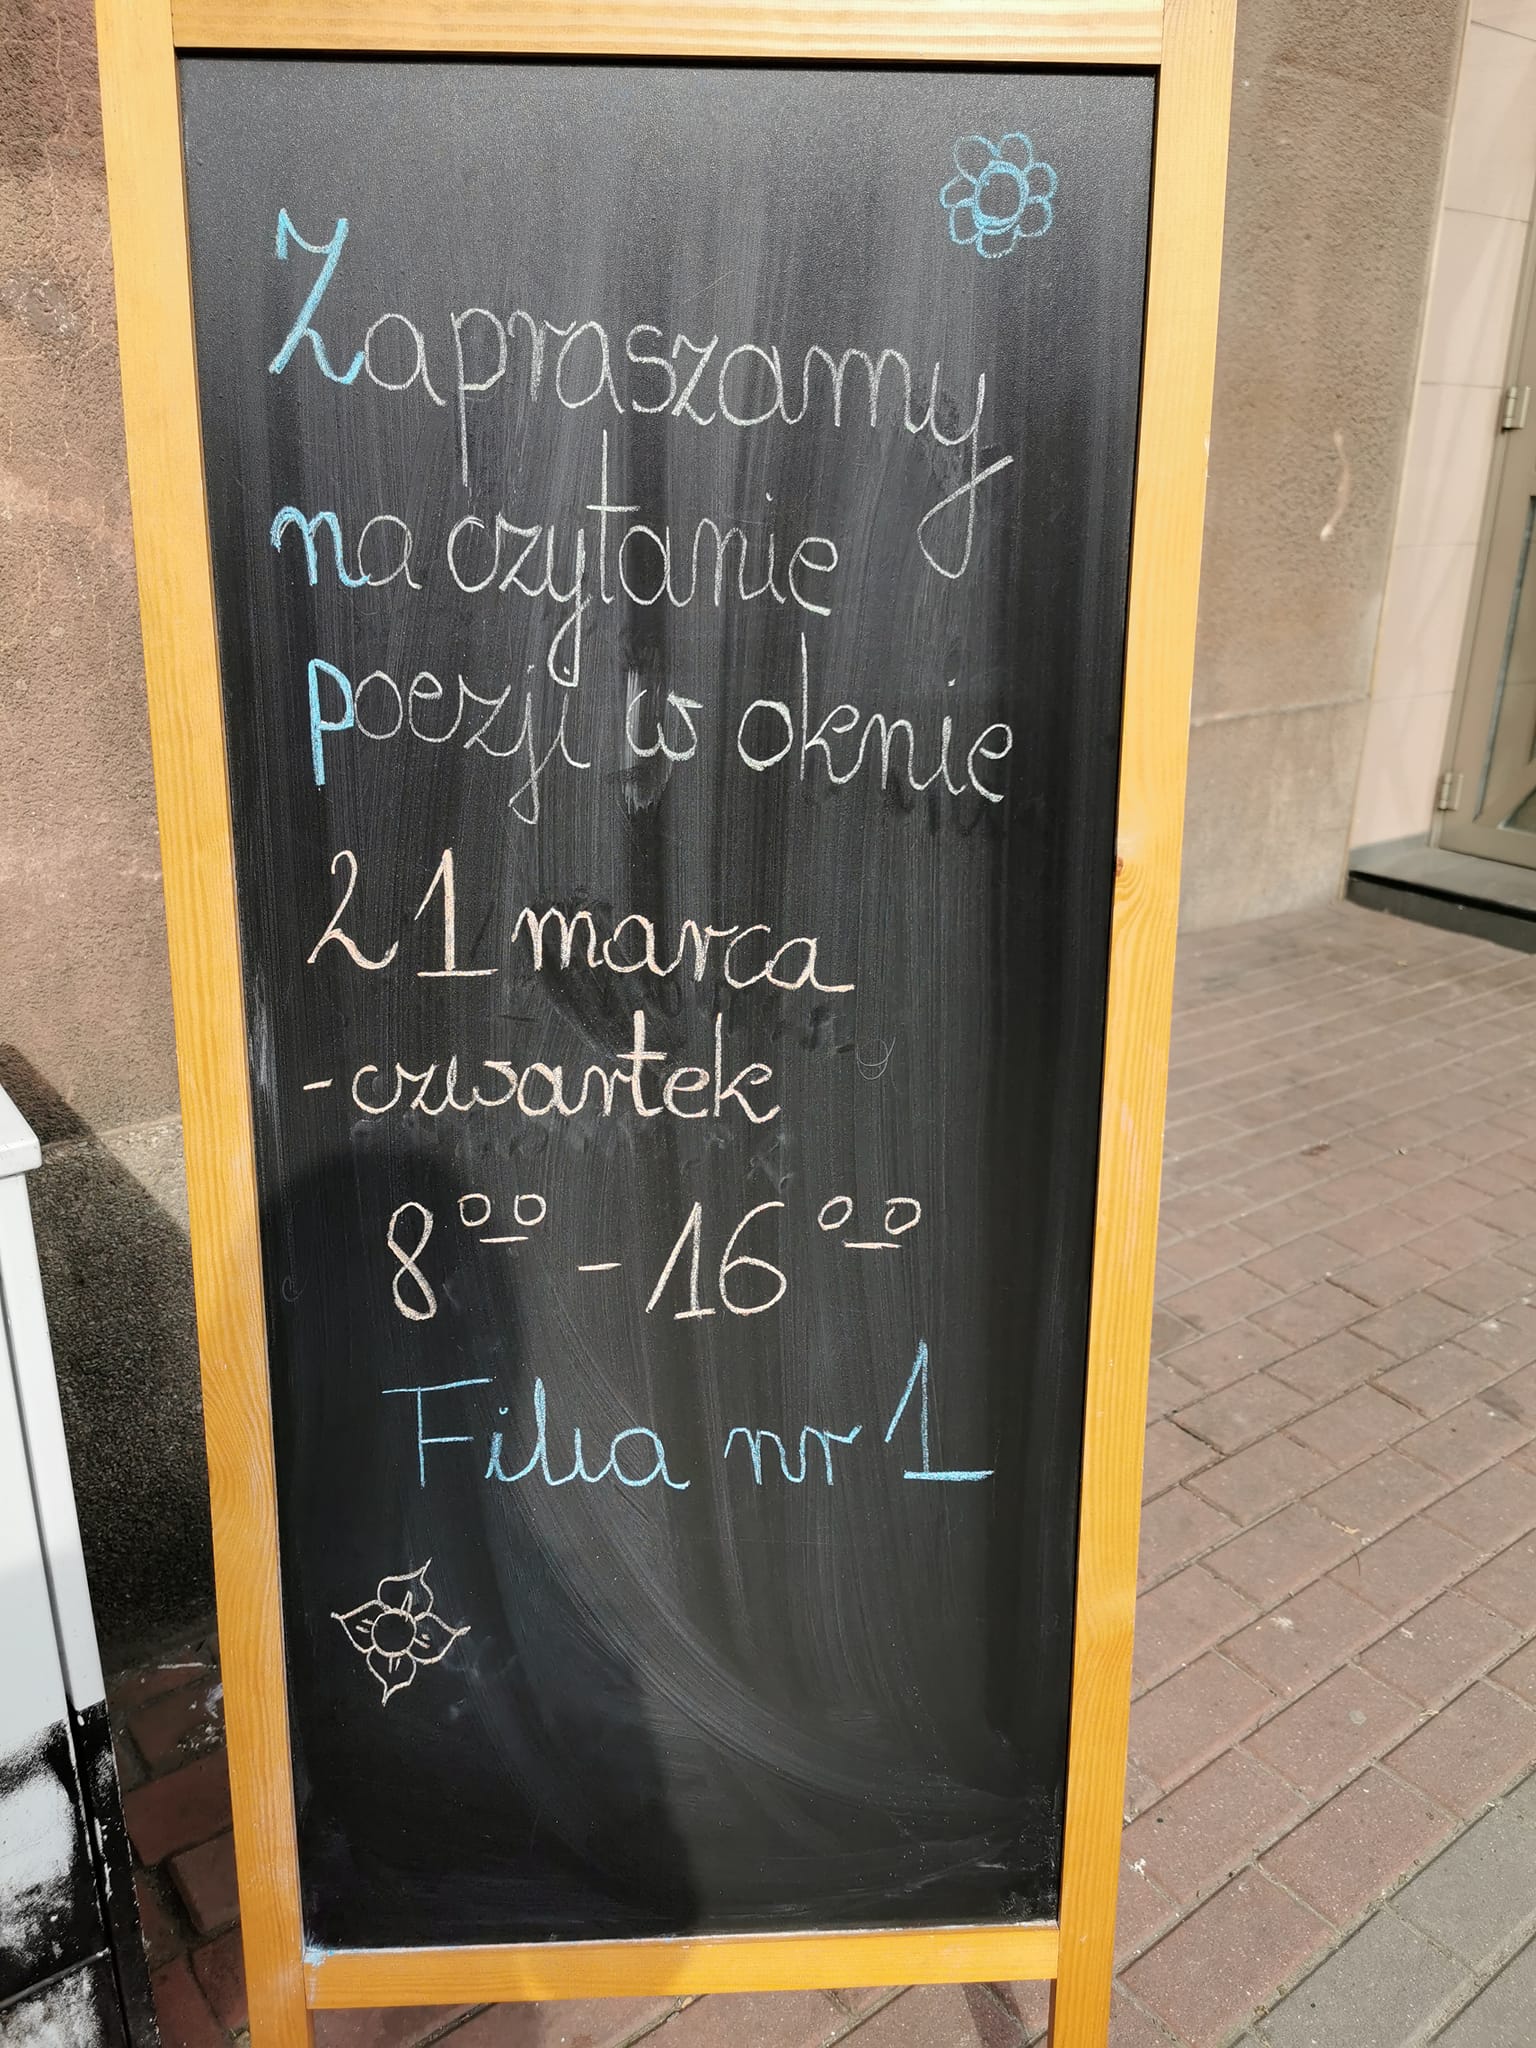 Zapraszamy
na czytanie
poezji w oknie
21 marca
- czwartek
8⁰⁰ - 16⁰⁰
Filia nr 1